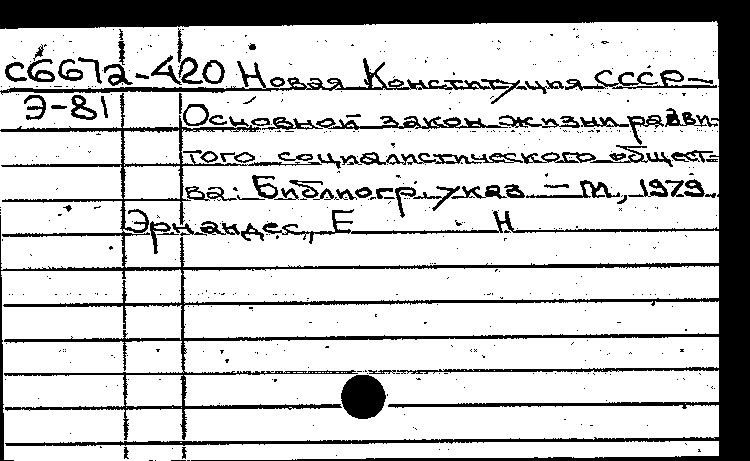 С6672-420 Новая Конституция СССР-
Э-81 Основной закон жизни разви-
того социалистического общест-
ва: Библиогр. указ - М, 1979.
Эрнандес, Е Н